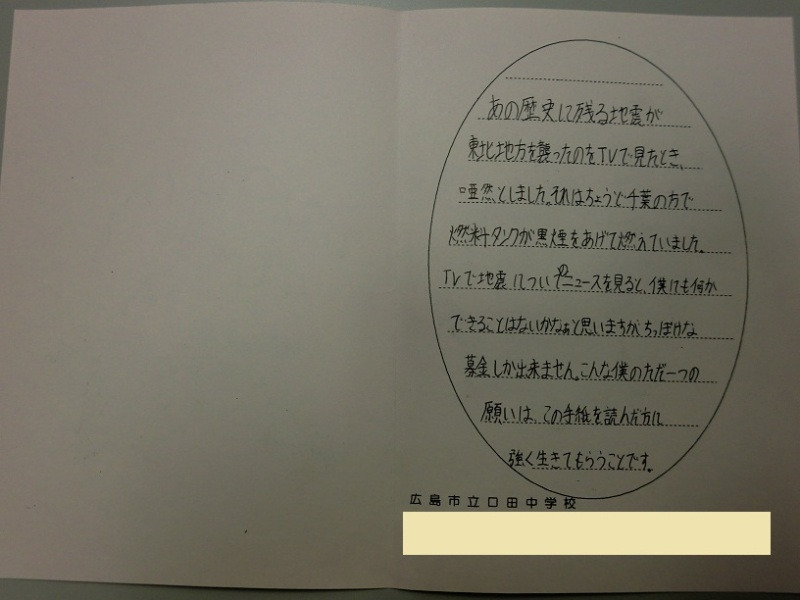 あの歴史に残る地震が
東北地方を襲ったのをTVで見たとき、
唖然としました。それはちょうど千葉の方で
燃料タンクが黒煙をあげて燃えていました。
TVで地震についてのニュースを見ると、僕にも何か
できることはないかなぁと思いますが、ちっぽけな
募金しか出来ません。こんな僕のただ一つの
願いは、この手紙を読んだ方に
強く生きてもらうことです。
広島市立口田中学校